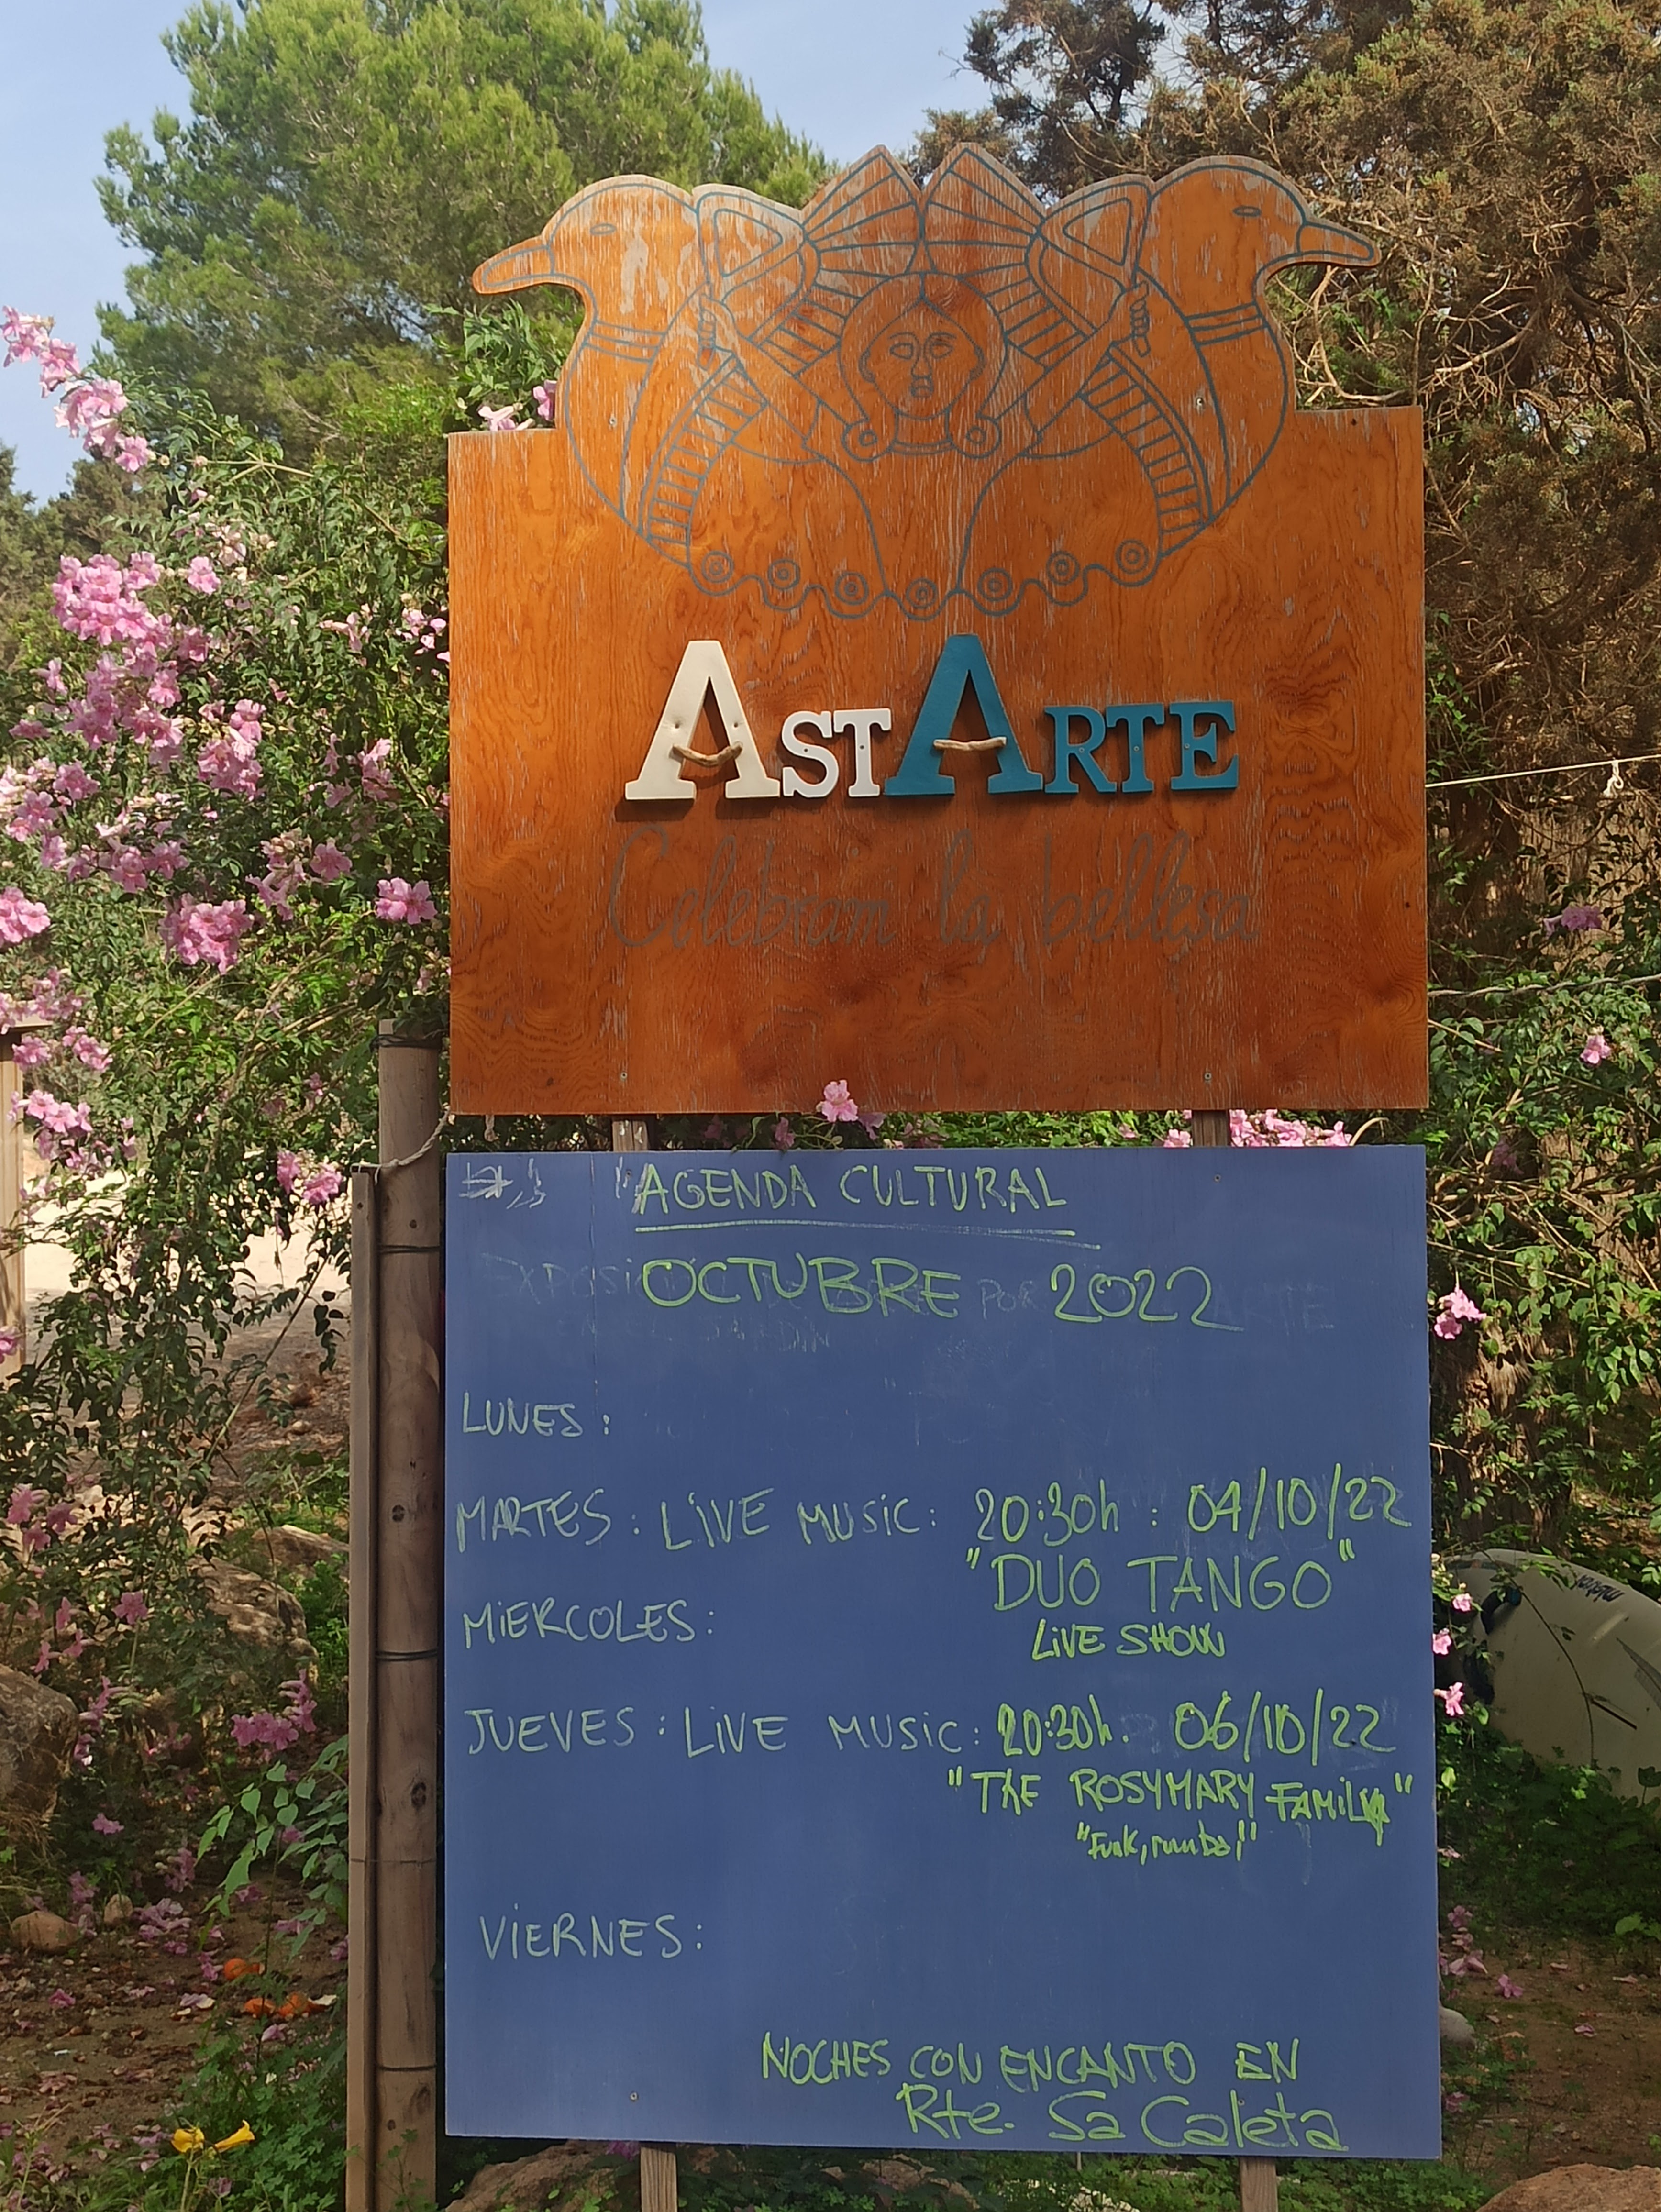 ASTARTE
Celebram la bellesa
"AGENDA CULTURAL
OCTUBRE 2022
LUNES:
MARTES: LIVE MUSIC: 20:30h : 04/10/22
"DUO TANGO"
MIERCOLES:
LIVE SHOW
JUEVES: LIVE MUSIC: 20:30h. 06/10/22
"THE ROSYMARY FAMILY"
"Funk, rumba"
VIERNES:
NOCHES CON ENCANTO EN
Rte. Sa Caleta